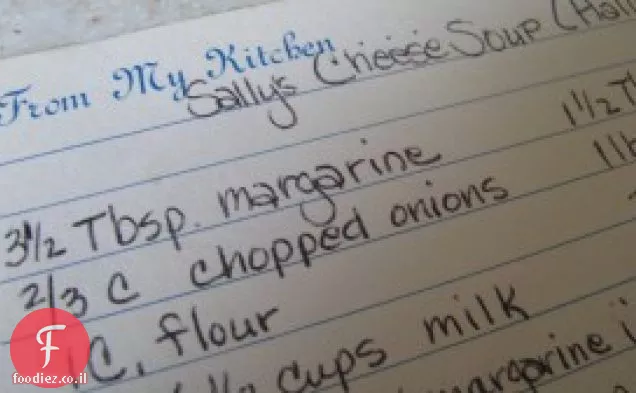 From My Kitchen
Sally's Cheese Soup (Hal
3 1/2 Tbsp. margarine 1 1/2 T
2/3 C chopped onions 1 lb
1 C. flour
1/2 cups milk
margarine i
F
foodiez.co.il